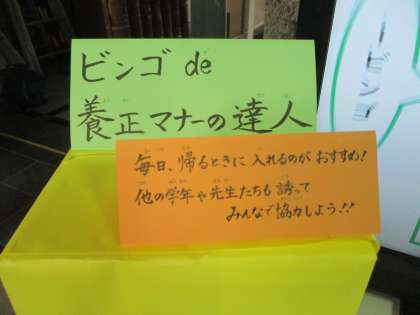 ビンゴ de
養正マナーの達人
毎日、帰るときに入れるのがおすすめ!
他の学年や先生たちも誘って
みんなで協力しよう!!